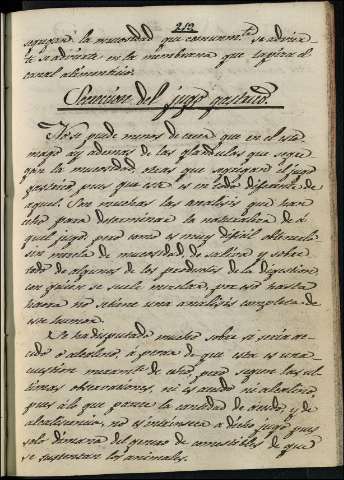 212
segregan la mucosidad que comunmte. se advier-
te se advierte en la membrana que tapiza el
canal alimenticio.
Secrecion del jugo gastrico.
No se puede menos de creer que en el esto-
mago ay ademas de las glandulas que segre-
gan la mucosidad, otras que segregan el jugo
gastrico, pues que este es en todo diferente de
aquel. Son muchas las analisis que se han
echo para determinar la naturaleza de a
quel jugo, pero como es muy dificil obtenerlo
sin mezcla de mucosidad, de saliva y sobre
todo de algunos de los productos de la digestion
con quien se suele mezclar, por eso hasta
haora no se tiene una analisis completa de
este humor.
Se ha disputado mucho sobre si seria aci-
do o alcalino, á pesar de que esta es una
cuestion meramte. de echo, pero segun las ul-
timas observaciones, ni es acido ni alcalino,
pues á lo que parece la cantidad de acido, y de
alcalescencia, no es intrinseca a dicho jugo, pues
solo dimana del genero de comestibles de que
se sustentan los animales.